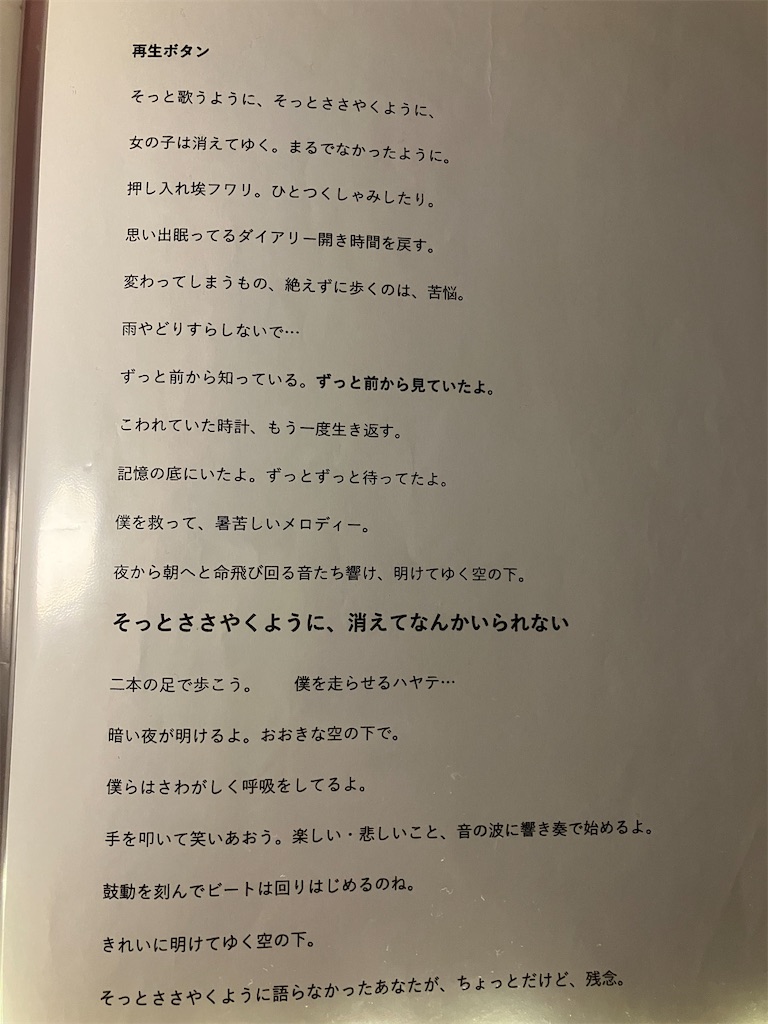 再生ボタン
そっと歌うように、そっとささやくように、
女の子は消えてゆく。まるでなかったように。
押し入れ埃フワリ。ひとつくしゃみしたり。
思い出眠ってるダイアリー開き時間を戻す。
変わってしまうもの、絶えずに歩くのは、苦悩。
雨やどりすらしないで…
ずっと前から知っている。ずっと前から見ていたよ。
こわれていた時計、もう一度生き返す。
記憶の底にいたよ。ずっとずっと待ってたよ。
僕を救って、暑苦しいメロディー。
夜から朝へと命飛び回る音たち響け、明けてゆく空の下。
そっとささやくように、消えてなんかいられない
二本の足で歩こう。　　僕を走らせるハヤテ…
暗い夜が明けるよ。おおきな空の下で。
僕らはさわがしく呼吸をしてるよ。
手を叩いて笑いあおう。楽しい・悲しいこと、音の波に響き奏で始めるよ。
鼓動を刻んでビートは回りはじめるのね。
きれいに明けてゆく空の下。
そっとささやくように語らなかったあなたが、ちょっとだけど、残念。